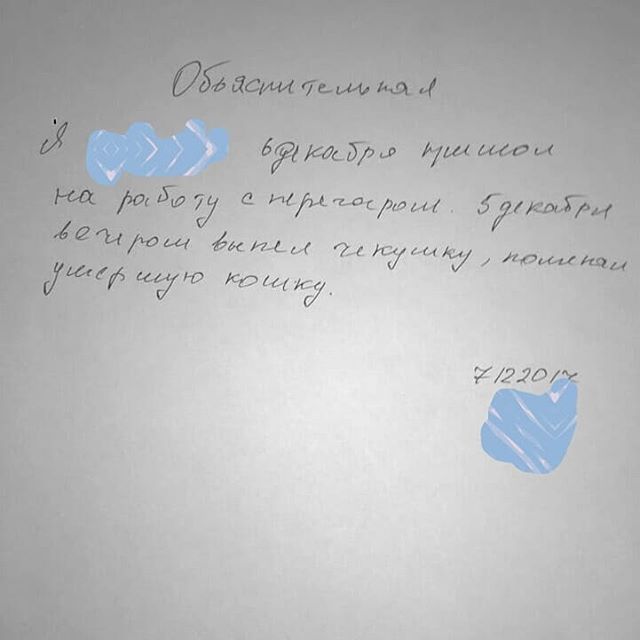 Объяснительная
Я 6 декабря пришол
на работу с перегаром. 5 декабря
вечером выпел чекушку, поменал
умершую кошку.
7122017